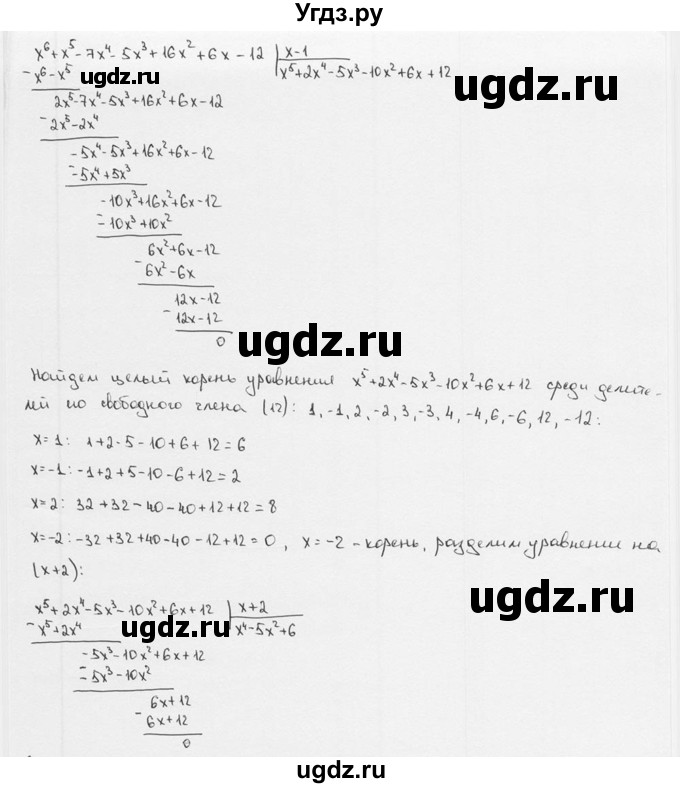 Угдз.ру
x⁶+x⁵-7x⁴-5x³+16x²+6x-12 | x-1
-x⁶-x⁵ ugdz.ru x⁵+2x⁴-5x³-10x²+6x+12
ugdz.ru
2x⁵-7x⁴-5x³+16x²+6x-12
-2x⁵-2x⁴
-5x⁴-5x³+16x²+6x-12
-
-5x⁴+5x³
-10x³+16x²+6x-12
-
-10x³+10x²
6x²+6x-12
-6x²-6x
12x-12
-12x-12
0
ugdz.ru
Найдем целый корень уравнения x⁵+2x⁴-5x³-10x²+6x+12 среди делите-
лей по свободного члена (12): 1,-1,2,-2,3,-3,4,-4,6,-6,12,-12:
x=1: 1+2-5-10+6+12=6
x=-1: -1+2+5-10-6+12=2
x=2: 32+32-40-40+12+12=8
ugdz.ru
x=-2: -32+32+40-40-12+12=0, x=-2 - корень, разделим уравнение на
(x+2):
ugdz.ru
x⁵+2x⁴-5x³-10x²+6x+12 | x+2
-x⁵+2x⁴ ugdz.ru x⁴-5x²+6
-5x³-10x²+6x+12
-
-5x³-10x²
6x+12
-6x+12
0
ugdz.ru